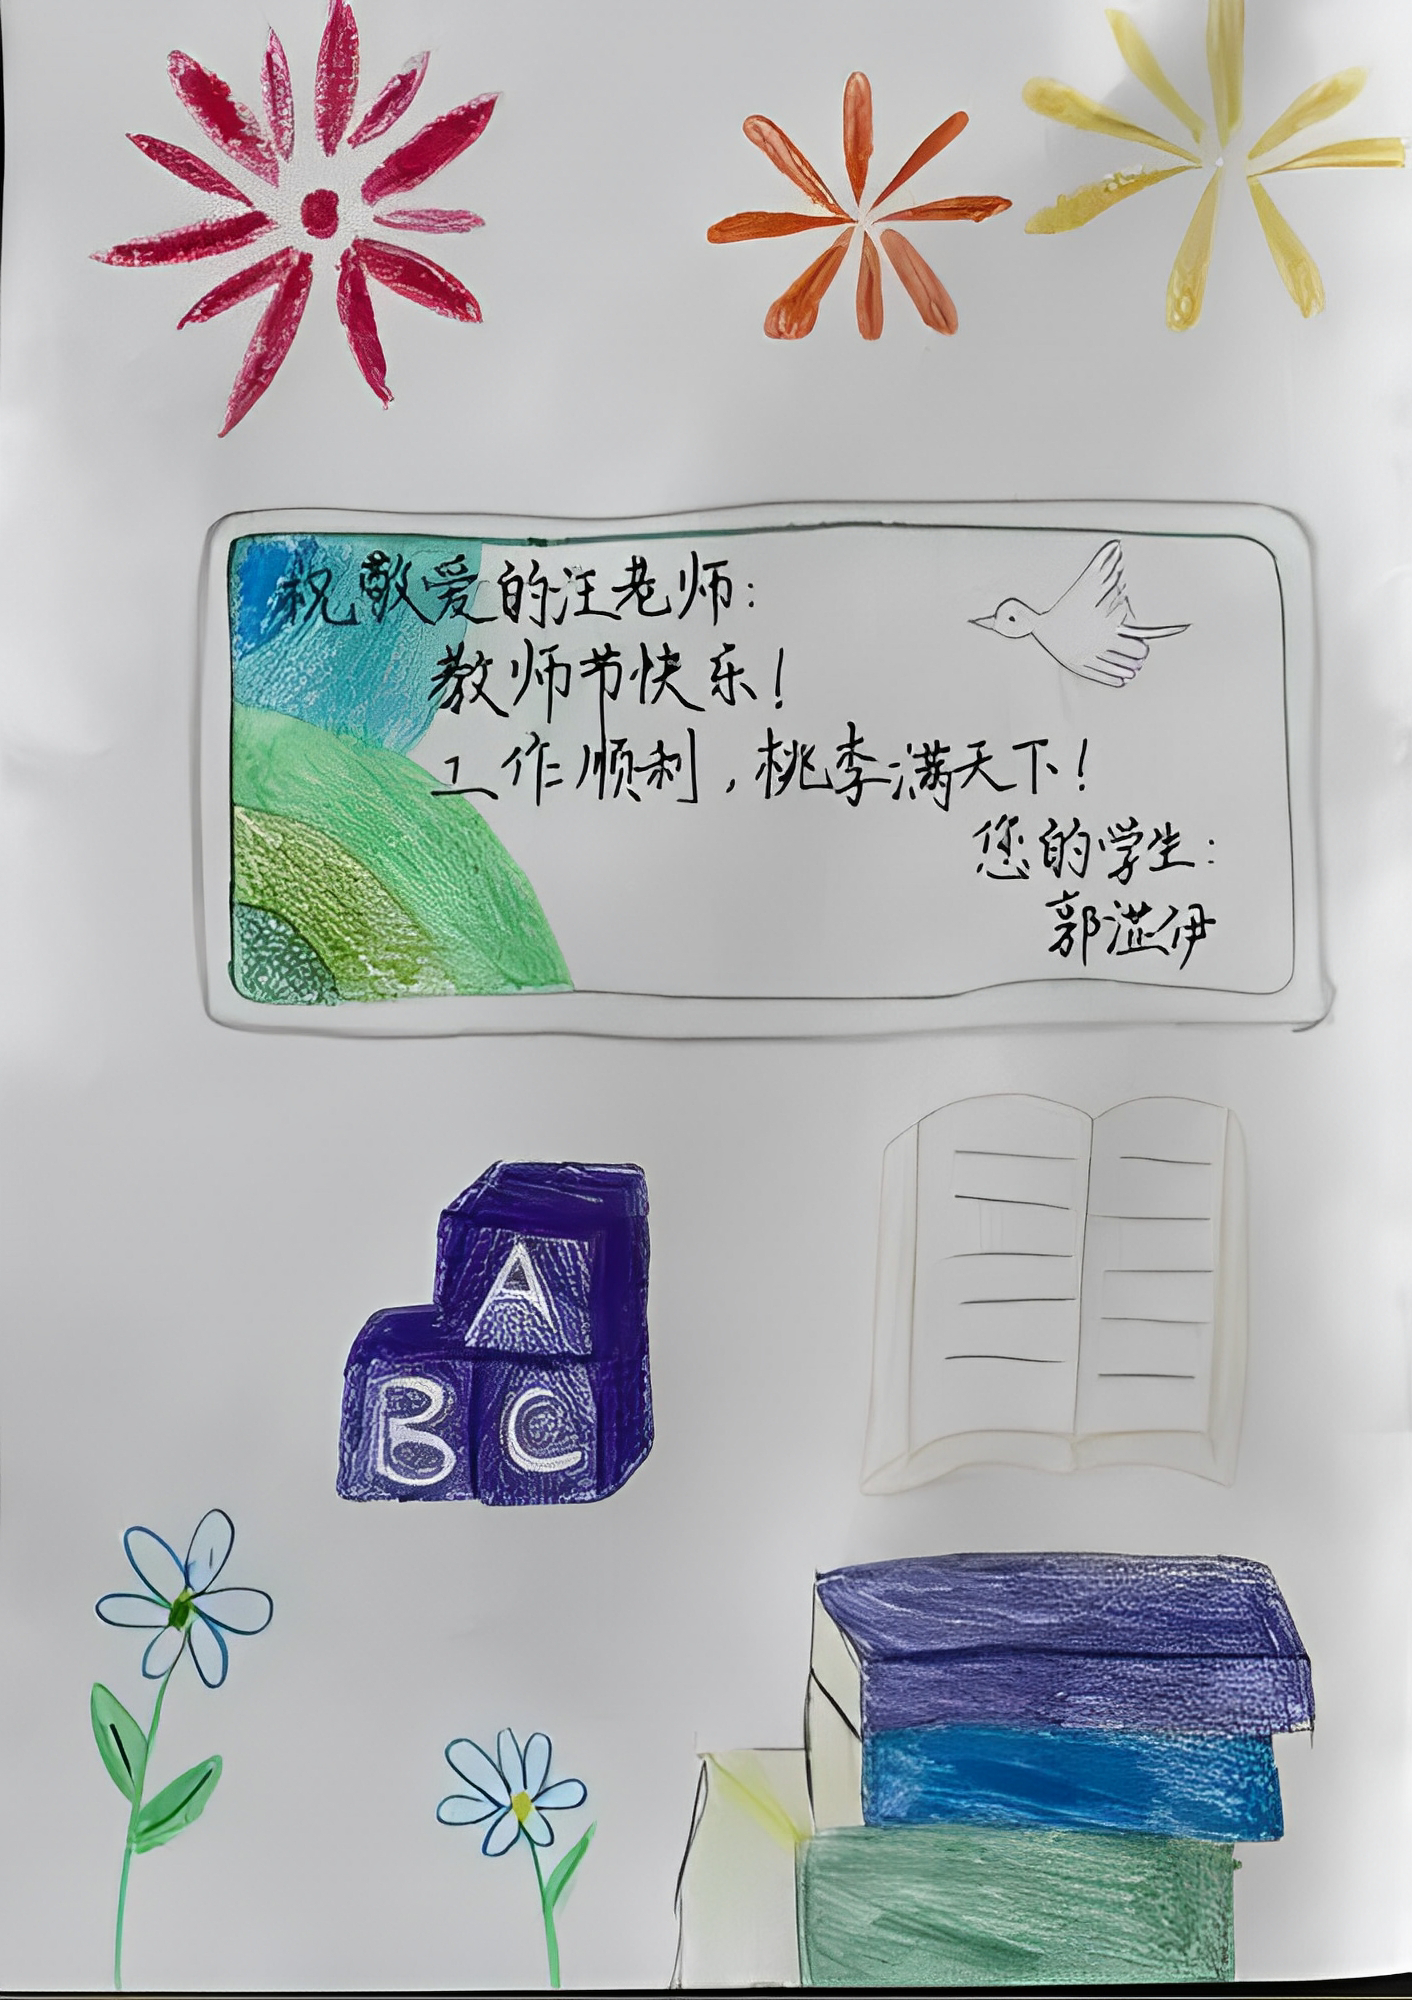 祝敬爱的汪老师:
教师节快乐!
工作顺利,桃李满天下!
您的学生:
郭芷伊
A
B C